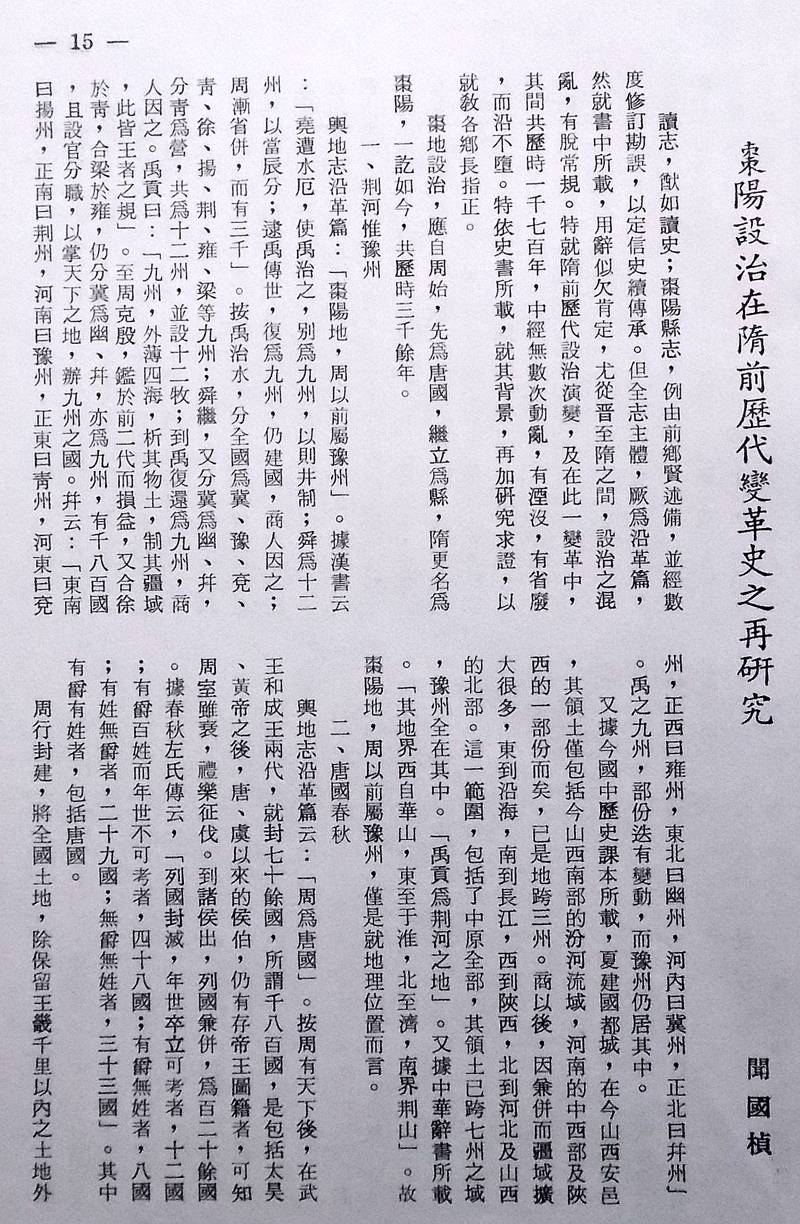 — 15 —
棗陽設治在隋前歷代變革史之再研究
聞國楨
讀志，猷如讀史；棗陽縣志，例由前鄉賢述備，並經數
度修訂勘誤，以定信史續傳承。但全志主體，厥爲沿革篇，
然就書中所載，用辭似欠肯定，尤從晋至隋之間，設治之混
亂，有脫常規。特就隋前歷代設治演變，及在此一變革中，
其間共歷時一千七百年，中經無數次動亂，有湮沒，有省廢
，而沿不墮。特依史書所載，就其背景，再加研究求證，以
就敎各鄉長指正。
棗地設治，應自周始，先爲唐國，繼立爲縣，隋更名爲
棗陽，一訖如今，共歷時三千餘年。
一、荆河惟豫州
輿地志沿革篇：「棗陽地，周以前屬豫州」。據漢書云
：「堯遭水厄，使禹治之，別爲九州，以則井制；舜爲十二
州，以當辰分；逮禹傳世，復爲九州，仍建國，商人因之；
周漸省併，而有三千」。按禹治水，分全國爲冀、豫、兗、
靑、徐、揚、荆、雍、梁等九州；舜繼，又分冀爲幽、幷，
分靑爲營，共爲十二州，並設十二牧；到禹復還爲九州，商
人因之。禹貢曰：「九州，外薄四海，析其物土，制其疆域
，此皆王者之規」。至周克殷，鑑於前二代而損益，又合徐
於靑，合梁於雍，仍分冀爲幽、幷，亦爲九州，有千八百國
，且設官分職，以掌天下之地，辦九州之國。幷云：「東南
曰揚州，正南曰荆州，河南曰豫州，正東曰青州，河東曰兗
州，正西曰雍州，東北曰幽州，河內曰冀州，正北曰幷州」
。禹之九州，部份迭有變動，而豫州仍居其中。
又據今國中歷史課本所載，夏建國都城，在今山西安邑
，其領土僅包括今山西南部的汾河流域，河南的中西部及陝
西的一部份而矣，已是地跨三州。商以後，因兼併而疆域擴
大很多，東到沿海，南到長江，西到陝西，北到河北及山西
的北部。這一範圍，包括了中原全部，其領土已跨七州之域
，豫州全在其中。「禹貢爲荆河之地」。又據中華辭書所載
。「其地界西自華山，東至于淮，北至濟，南界荆山」。故
棗陽地，周以前屬豫州，僅是就地理位置而言。
二、唐國春秋
輿地志沿革篇云：「周爲唐國」。按周有天下後，在武
王和成王兩代，就封七十餘國，所謂千八百國，是包括太昊
、黃帝之後，唐、虞以來的侯伯，仍有存帝王圖籍者，可知
周室雖衰，禮樂征伐。到諸侯出，列國兼併，爲百二十餘國
。據春秋左氏傳云，「列國封滅，年世卒立可考者，十二國
；有爵百姓而年世不可考者，四十八國；有爵無姓者，八國
；有姓無爵者，二十九國；無爵無姓者，三十三國」。其中
有爵有姓者，包括唐國。
周行封建，將全國土地，除保留王畿千里以內之土地外